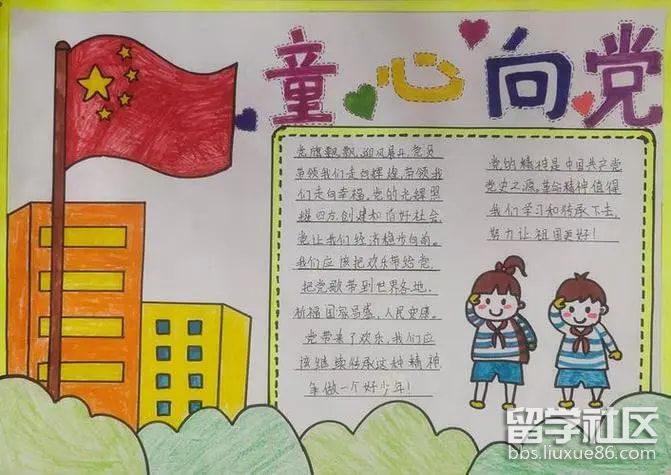 童心向党
党旗飘飘,迎风展开,党员
带领我们走向辉煌,带领我
们走向幸福,党的光辉照
耀四方,创建和谐好社会
党让我们经济稳步向前。
我们应该把欢乐带给党,
把党歌带到世界各地,
祈福国容昌盛、人民安康。
党带来了欢乐,我们应
该继续传承这种精神
争做一个好少年!
党的精神是中国共产党
党史之源,革命精神值得
我们学习和传承下去,
努力让祖国更好!
留学社区
bbs.liuxue86.com